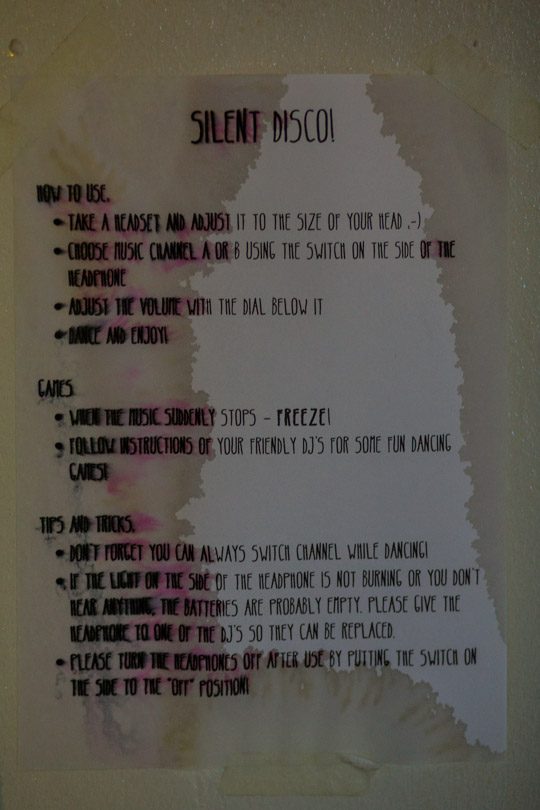 SILENT DISCO!
HOW TO USE.
• TAKE A HEADSET AND ADJUST IT TO THE SIZE OF YOUR HEAD ;-)
• CHOOSE MUSIC CHANNEL A OR B USING THE SWITCH ON THE SIDE OF THE
HEADPHONE
• ADJUST THE VOLUME WITH THE DIAL BELOW IT
• DANCE AND ENJOY!
GAMES
• WHEN THE MUSIC SUDDENLY STOPS – FREEZE!
• FOLLOW INSTRUCTIONS OF YOUR FRIENDLY DJ'S FOR SOME FUN DANCING
GAMES!
TIPS AND TRICKS.
• DON'T FORGET YOU CAN ALWAYS SWITCH CHANNEL WHILE DANCING!
• IF THE LIGHT ON THE SIDE OF THE HEADPHONE IS NOT BURNING OR YOU DON'T
HEAR ANYTHING, THE BATTERIES ARE PROBABLY EMPTY. PLEASE GIVE THE
HEADPHONE TO ONE OF THE DJ'S SO THEY CAN BE REPLACED.
• PLEASE TURN THE HEADPHONES OFF AFTER USE BY PUTTING THE SWITCH ON
THE SIDE TO THE "OFF" POSITION!